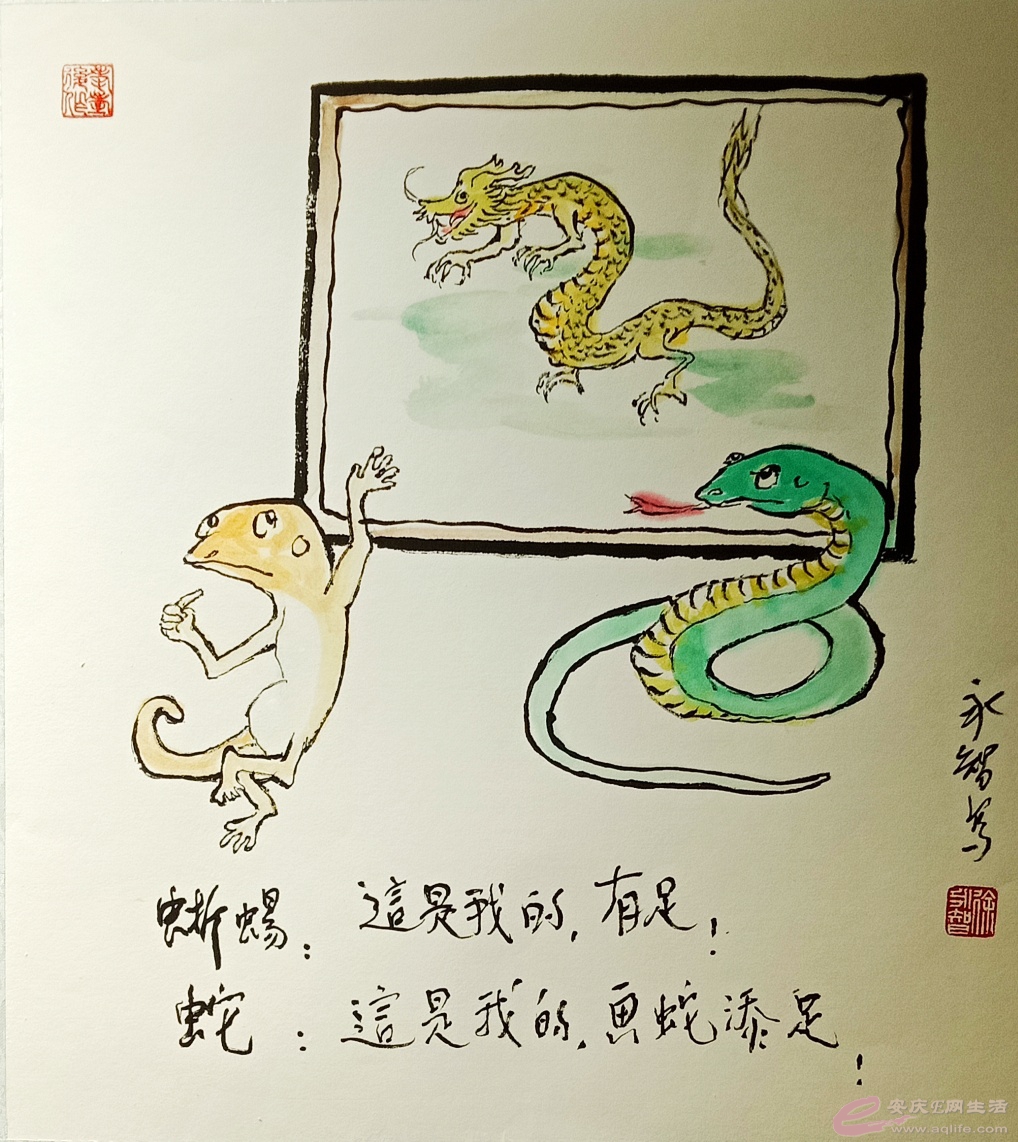 蜥蜴：這是我的，有足！
蛇：這是我的，画蛇添足！
永智写
安庆E网生活
www.aqlife.com